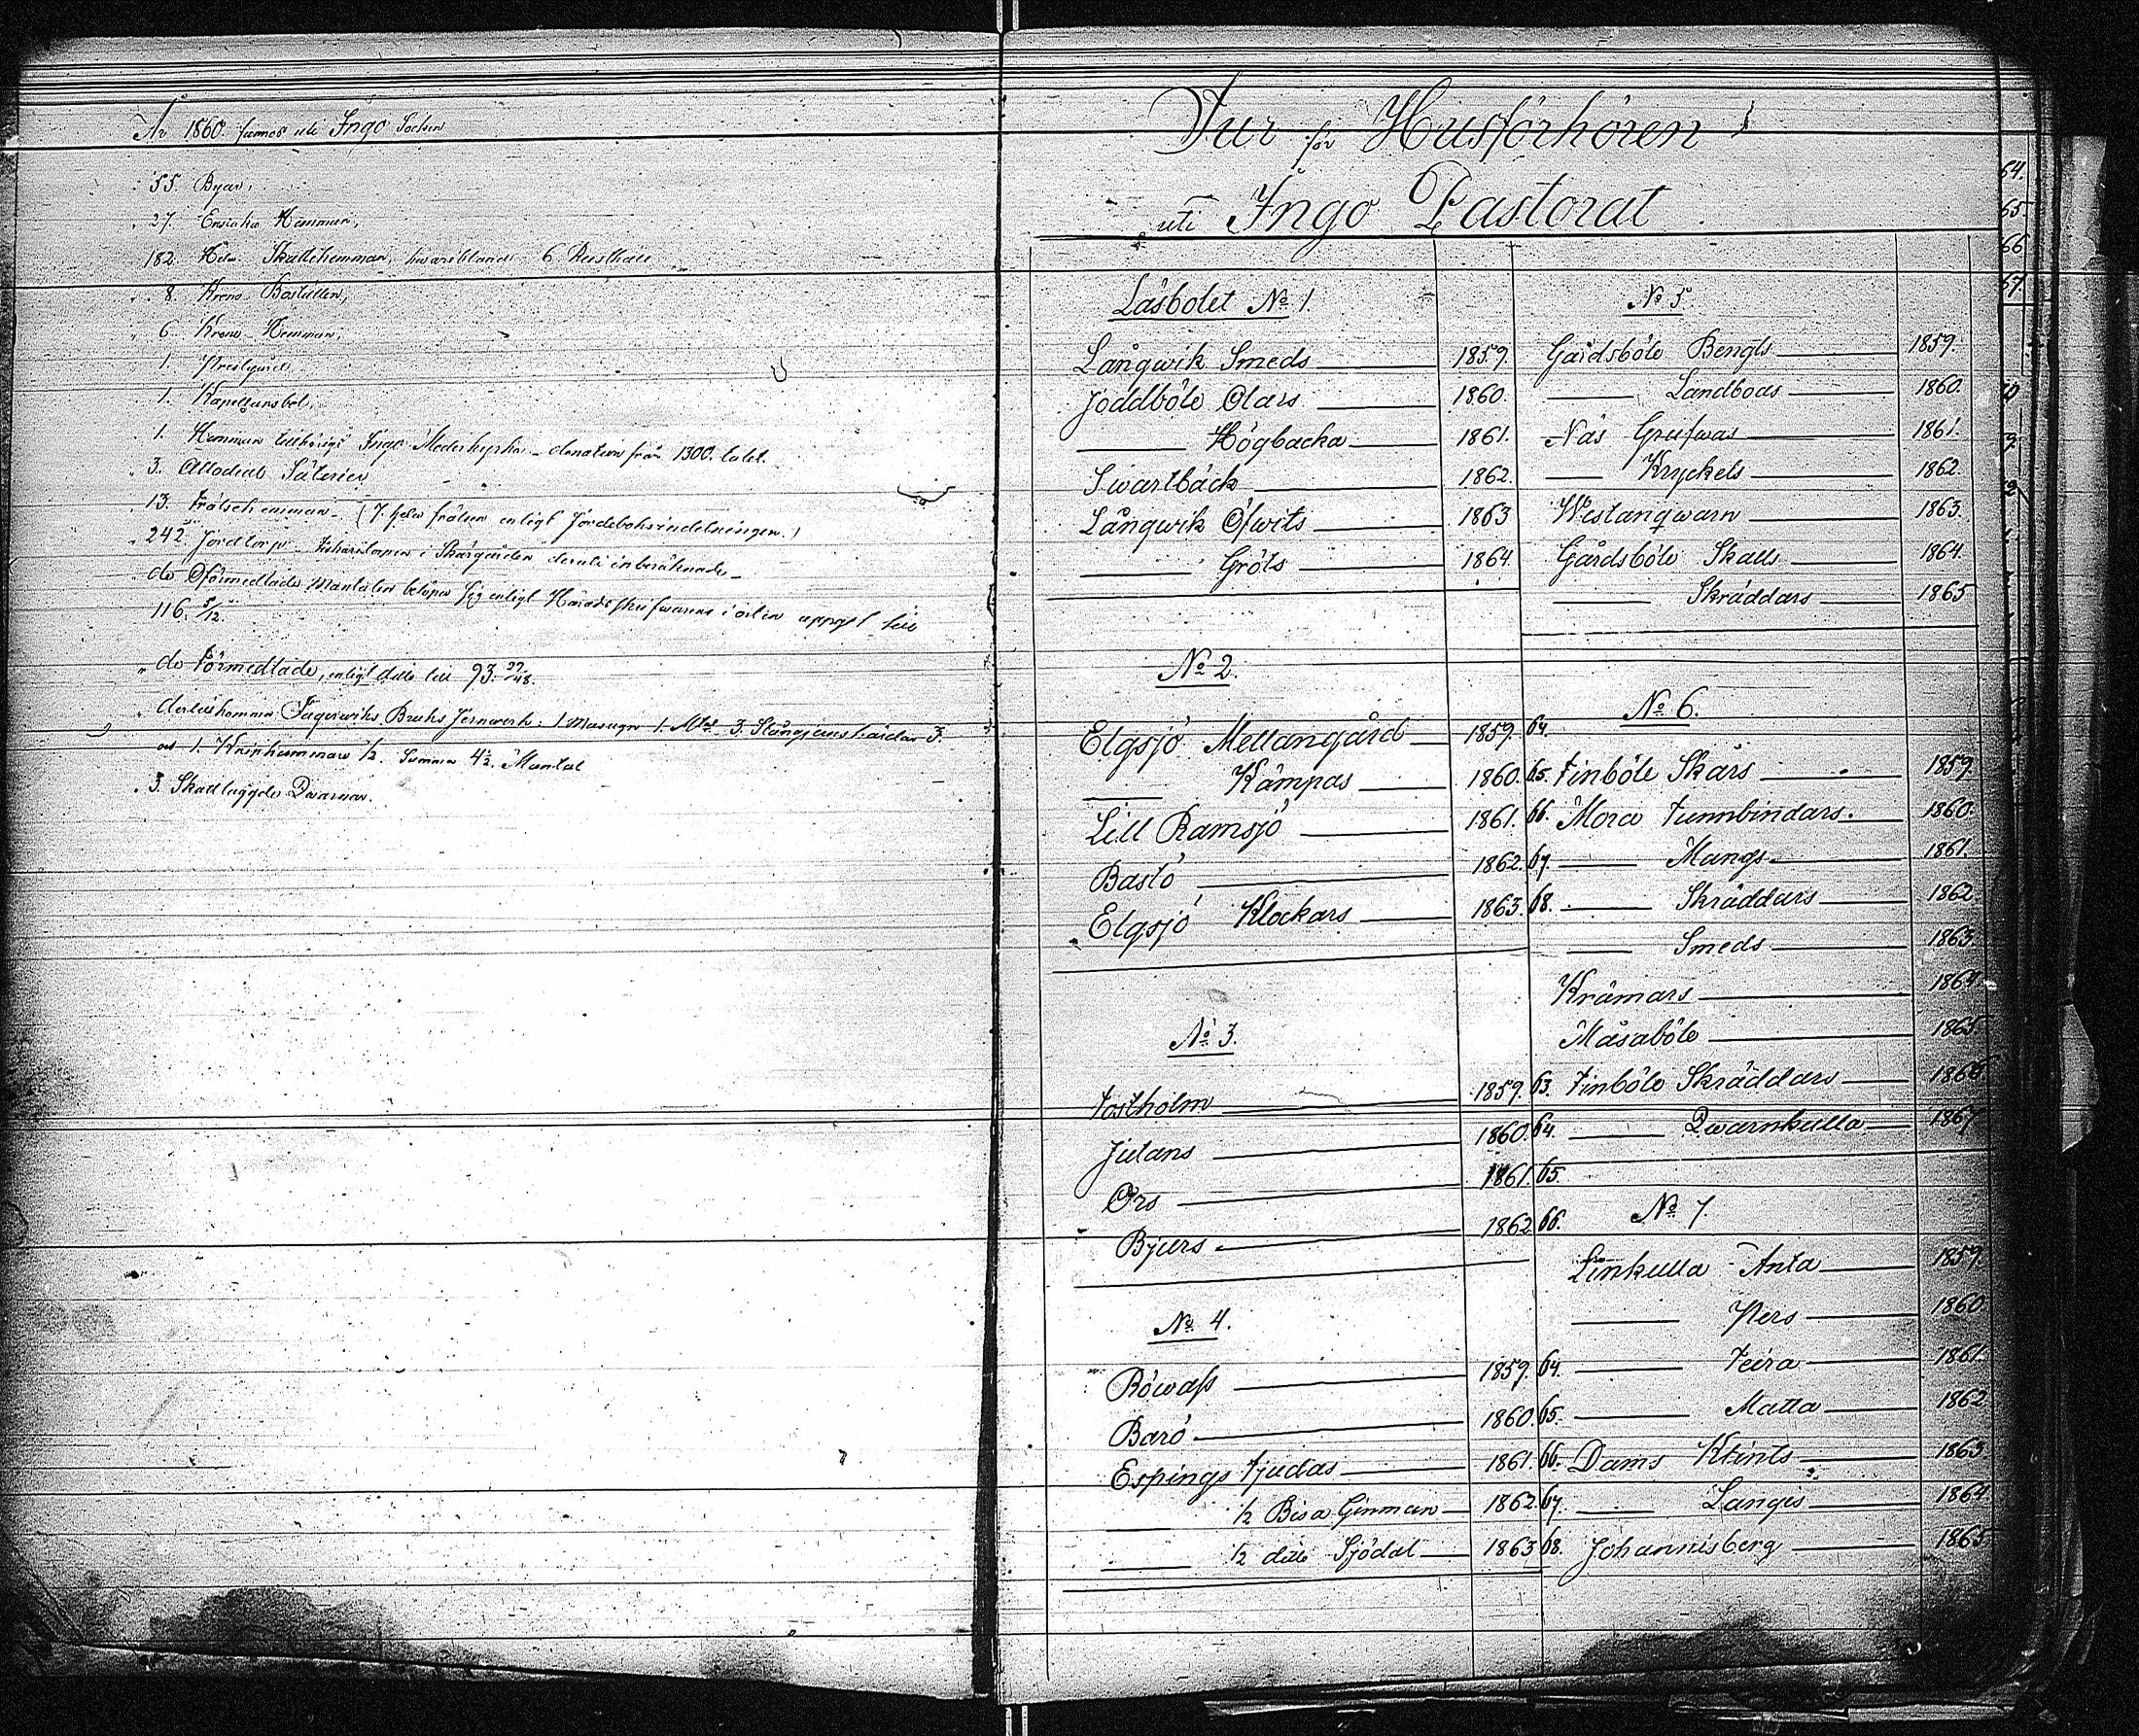 År 1860 funnos uti Ingo Socken
55. Byar,
27. Enstaka Hemman,
182. Hela Skattehemman, hvaribland 6 Rusthåll
8. Krono Boställen,
6. Krono Hemman,
1. Prestgård,
1. Kapellansbol,
1. Hemman tillhörigt Ingo Moderkyrka - donation från 1300. talet.
3. Allodial Säterier
13. Frälsehemman - (7. hela frälsen enligt Jordeboksindelningen.)
242. Jordtorp - Fiskaretorpen i Skärgården deruti inberäknade -
do Oförmedlade Mantalen belöpa sig enligt Häradsskrifwarens i orten uppgift till
116. 5/12.
do Förmedlade, enligt dito till 93.
Fagerwiks Bruks Jernwerk: 1 Masugn 1. Mtal 3. Stångjernshärdar 3.
och 1. Knipphammare 1/2. Summa 4 1/2. Mantal
3. Skattlaggde Qwarnar.
Tur för Husförhören
uti Ingo Pastorat
Läsbolet No 1.
Långwik Smeds 1859.
Joddböle Olars 1860.
Högbacka 1861.
Swartbäck 1862.
Långwik Ofwits 1863
Gröts 1864.
No 2.
Elgsjö Mellangård 1859. 64.
Kämpas 1860. 65.
Lill Ramsjö 1861. 66.
Bastö 1862. 67
Elgsjö Klockars 1863. 68.
No 3.
Tostholm 1859. 63.
Jutans 1860. 64.
Ors 1861. 65.
Bjurs 1862 66.
No 4.
Röwass 1859. 64.
Barö 1860. 65.
Espings Tjudas 1861. 66.
1/2 Bisa Ginman 1862. 67.
1/2 dito Sjödal 1863 68.
No 5
Gårdsböle Bengts 1859.
Landboas 1860.
Näs Grufwas 1861.
Kryckels 1862.
Westanqwarn 1863.
Gårdsböle Skalls 1864.
Skräddars 1865
No 6.
Finböle Skärs 1859.
Mora Tunnbindars. 1860.
Mangs 1861.
Skräddars 1862.
Smeds 1863.
Krämars 1864
Måsaböle 1865
Finböle Skräddars 1866
Qwarnkulla 1867
No 7.
Linkulla Anta 1859.
Pers 1860
Teira 1861
Matta 1862
Dams Klints 1863.
Langis 1864
Johannisberg 1865